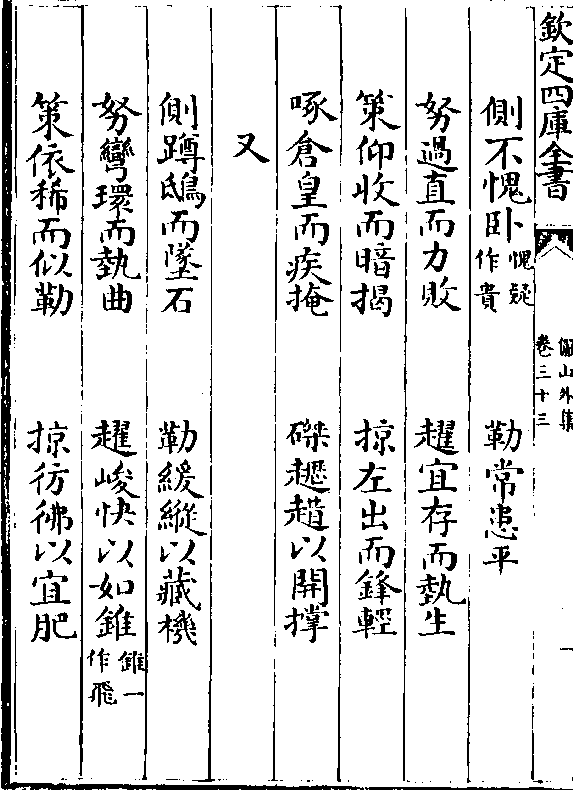 欽定四庫全書
儼山外集
卷三十三
側不愧卧愧疑作貴　勒常患平
努過直而力敗　趯宜存而埶生
策仰收而暗揭　掠左出而鋒輕
啄倉皇而疾掩　磔趞以開撑
又
側蹲鴟而墜石　勒緩縱以藏機
努彎環而埶曲　趯峻快以如錐錐一作飛
策依稀而似勒　掠彷彿以宜肥